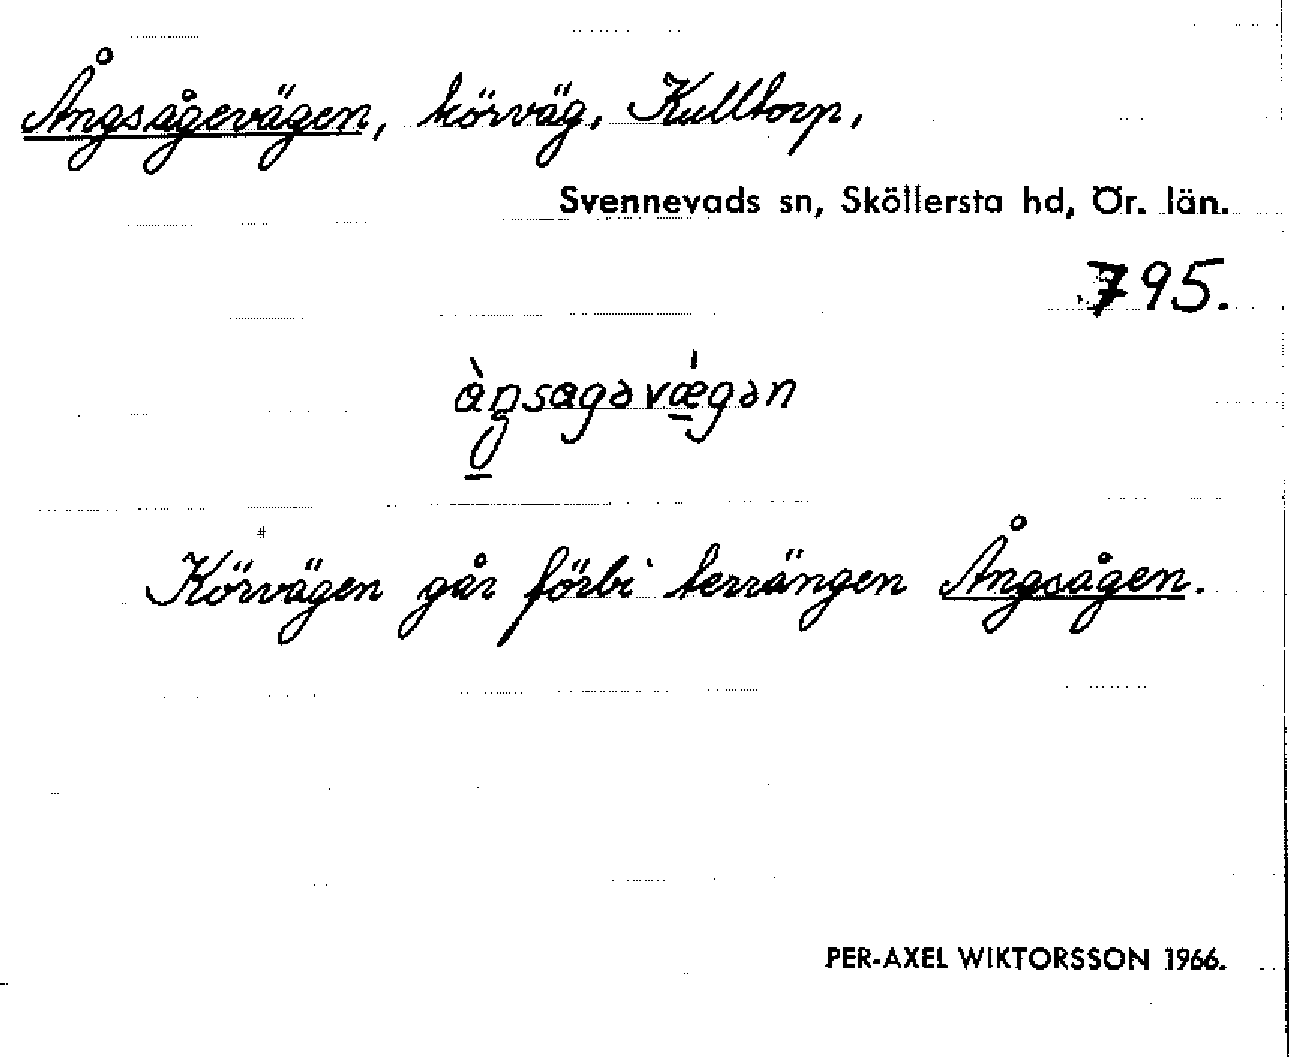 Ångsågevägen, körväg, Kulltorp,
Svennevads sn, Sköllersta hd, Ör. län.
795.
Körvägen går förbi terrängen Ångsågen.
PER-AXEL WIKTORSSON 1966.